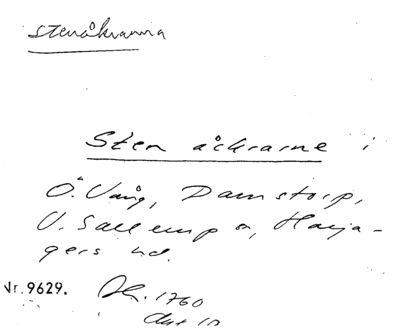 stenåkrarna
Sten åckrarne i
Ö. Vång, Damstorp,
V. Sallerup sn, Harja-
gers hd.
Nr. 9629. Ak. 1760
Akt 10